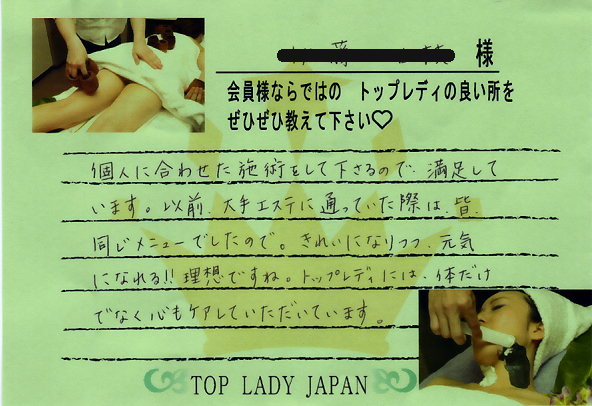 様
会員様ならではの トップレディの良い所を
ぜひぜひ教えて下さい♡
個人に合わせた施術をして下さるので、満足して
います。以前、大手エステに通っていた際は、皆、
同じメニューでしたので。きれいになりつつ、元気
になれる!!理想ですね。トップレディには、体だけ
でなく心もケアしていただいています。
TOP LADY JAPAN